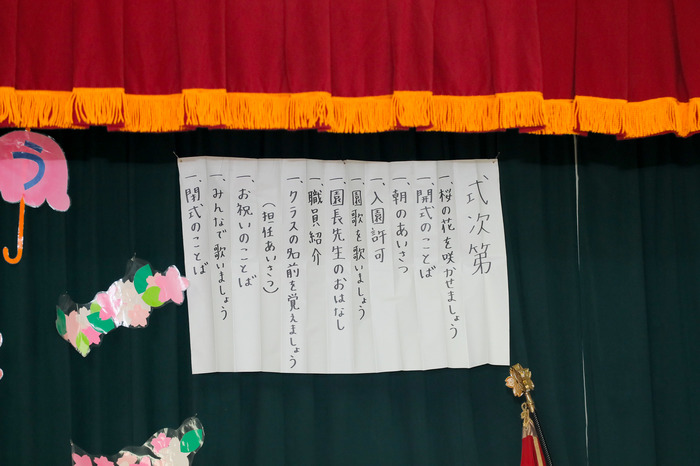 式次第
一、桜の花を咲かせましょう
一、開式のことば
一、朝のあいさつ
一、入園許可
一、園歌を歌いましょう
一、園長先生のおはなし
一、職員紹介
一、クラスの名前を覚えましょう
(担任あいさつ)
一、お祝いのことば
一、みんなで歌いましょう
一、閉式のことば
う